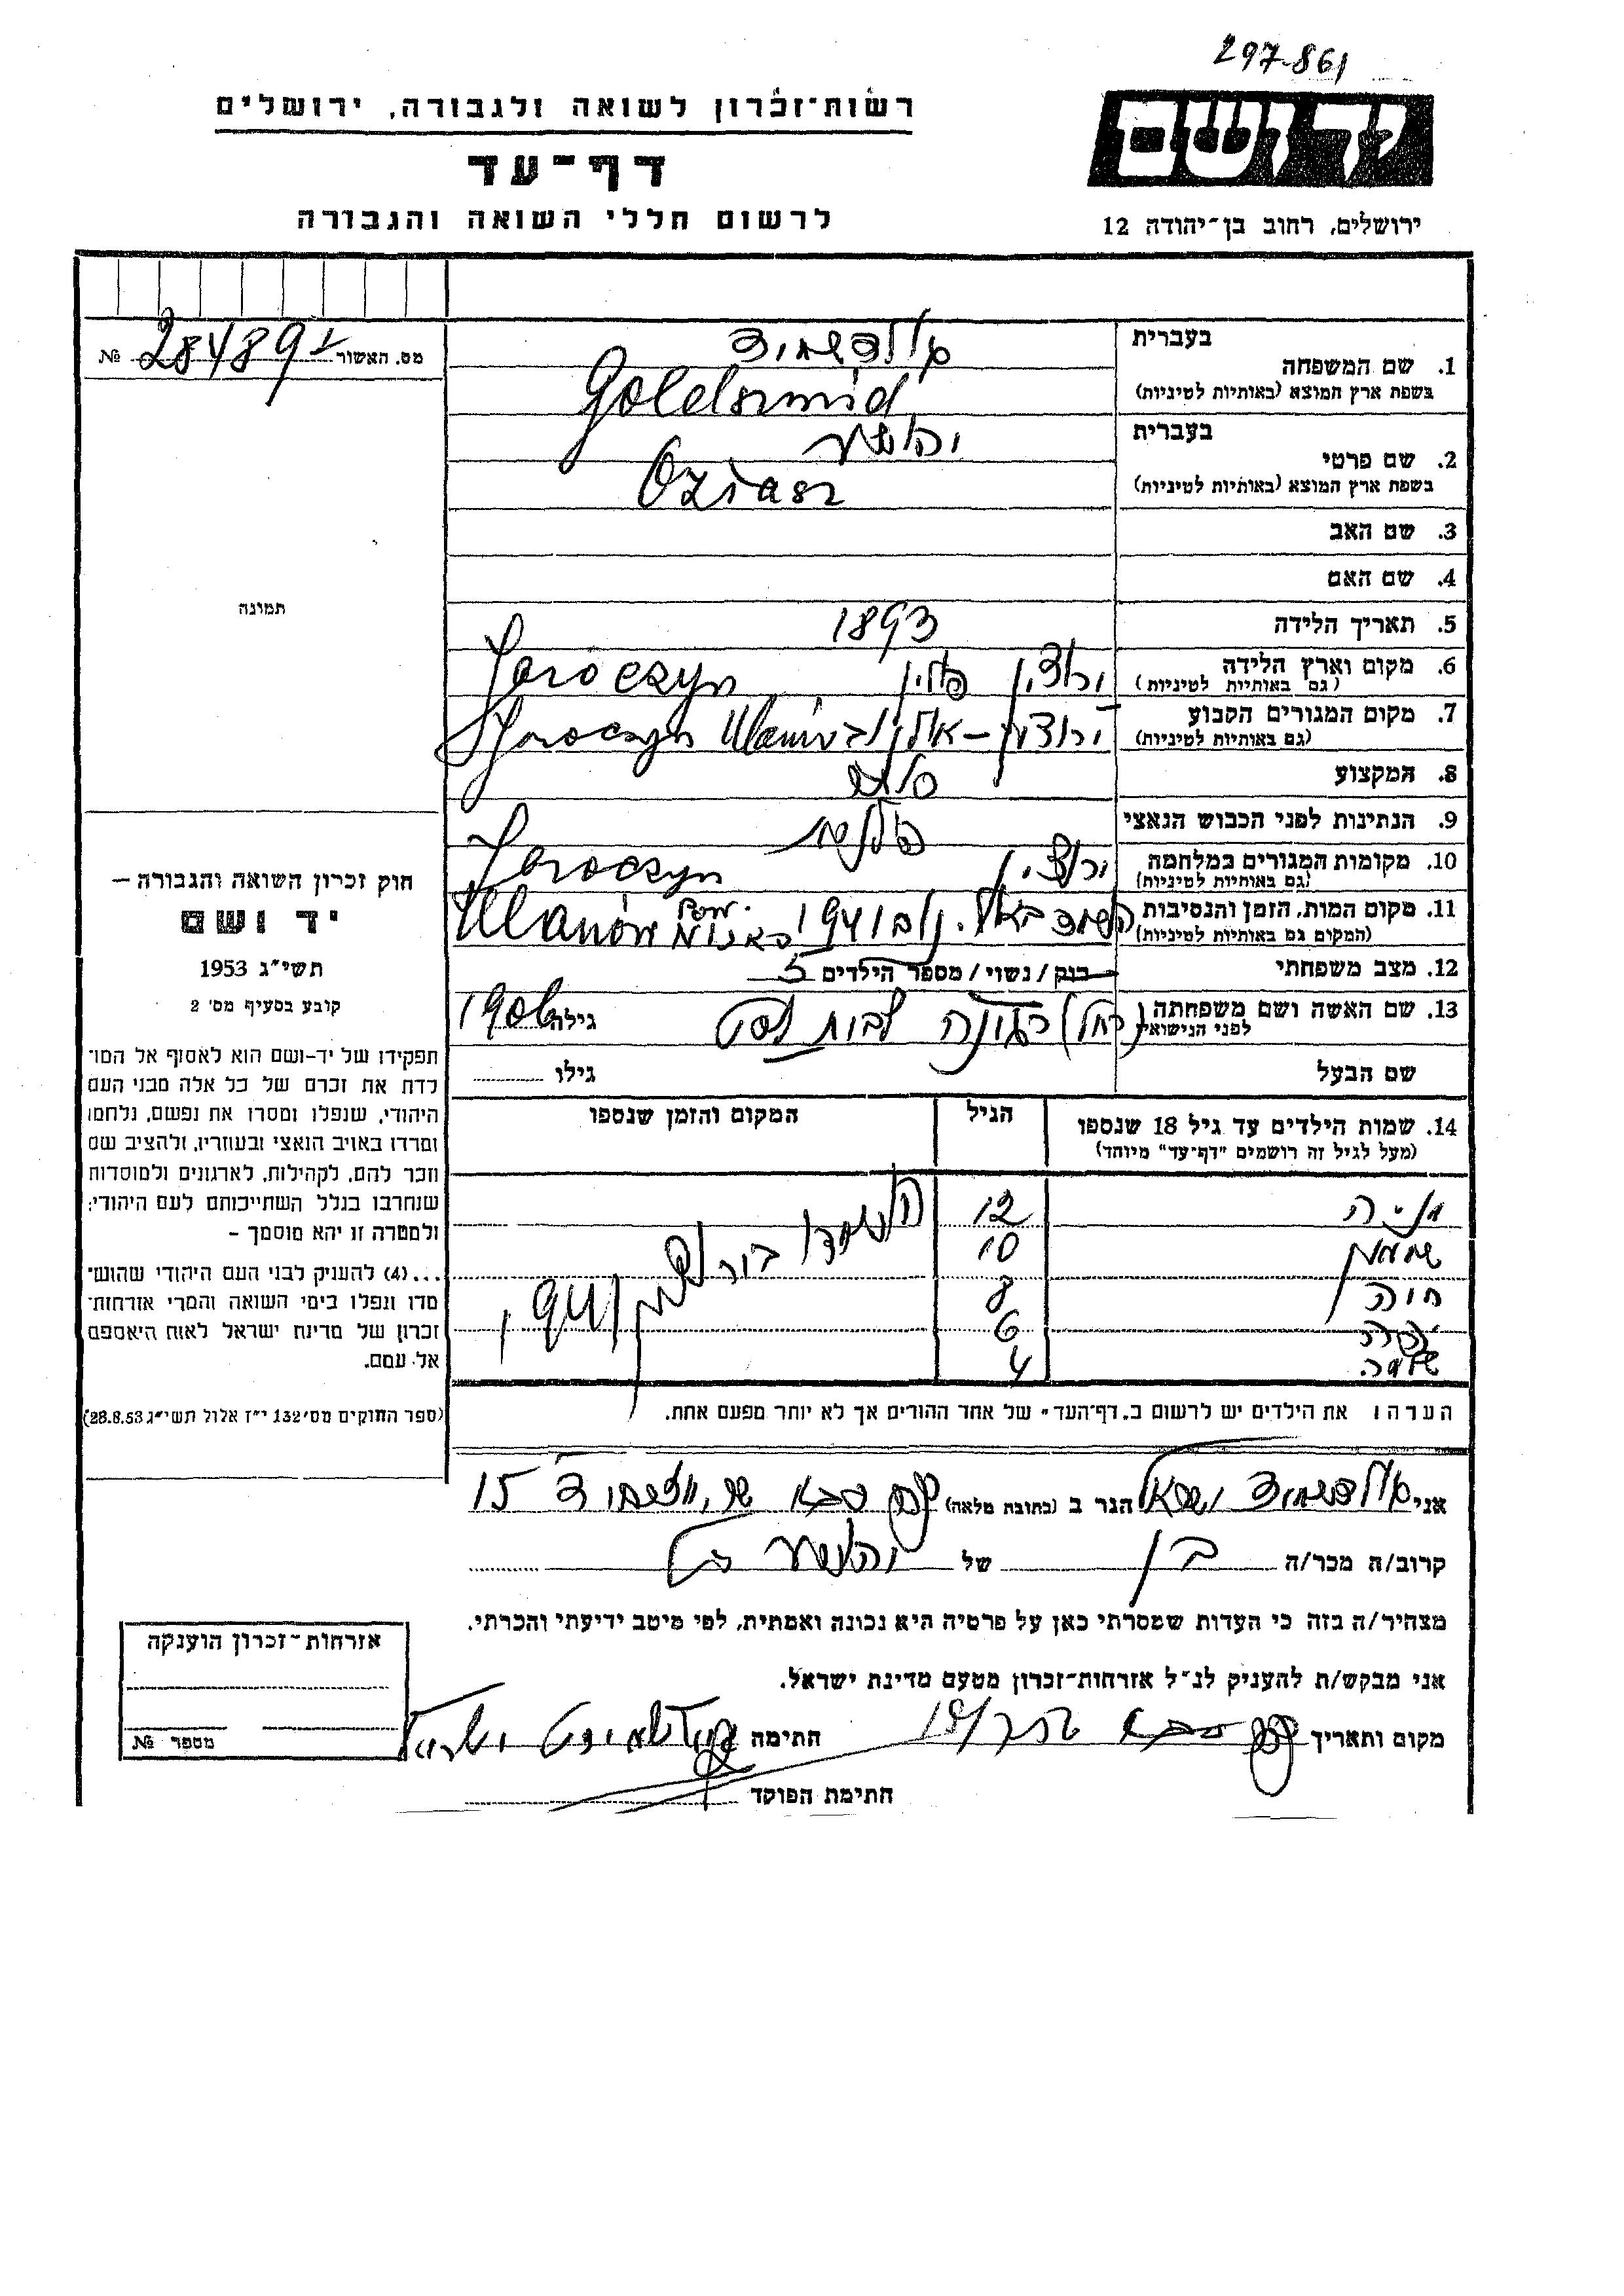 297-861
רשות-זכרון לשואה ולגבורה, ירושלים
יד ושם
דף-עד
לרשום חללי השואה והגבורה
ירושלים, רחוב בן-יהודה 12
מס. האשור 284891 №
1. שם המשפחה
בעברית גולדשמיד
בשפת ארץ המוצא (באותיות לטיניות) Goldszmid
2. שם פרטי
בעברית יהושע
בשפת ארץ המוצא (באותיות לטיניות) Oziasz
3. שם האב
4. שם האם
תמונה
5. תאריך הלידה 1893
6. מקום וארץ הלידה (גם באותיות לטיניות) פולין Jaroczyn
7. מקום המגורים הקבוע (גם באותיות לטיניות) Jaroczyn Ulanów
8. המקצוע
9. הנתינות לפני הכבוש הנאצי פולנית
10. מקומות המגורים במלחמה (גם באותיות לטיניות) Jaroczyn
11. מקום המות, הזמן והנסיבות (המקום גם באותיות לטיניות) 1941 Ulanów
12. מצב משפחתי רווק / נשוי / מספר הילדים 5
13. שם האשה ושם משפחתה לפני הנישואין (רחל) לבית גילה 1906
שם הבעל גילו
14. שמות הילדים עד גיל 18 שנספו (מעל לגיל זה רושמים "דף-עד" מיוחד) הגיל המקום והזמן שנספו
12
שמעון 10
חיה 8
6
שלמה 4
הושמדו 1941
הערה: את הילדים יש לרשום ב"דף-העד" של אחד ההורים אך לא יותר מפעם אחת.
חוק זכרון השואה והגבורה –
יד ושם
תשי"ג 1953
קובע בסעיף מס' 2
תפקידו של יד-ושם הוא לאסוף אל המו־
לדת את זכרם של כל אלה מבני העם
היהודי, שנפלו ומסרו את נפשם, נלחמו
ומרדו באויב הנאצי ובעוזריו, ולהציב שם
וזכר להם, לקהילות, לארגונים ולמוסדות
שנחרבו בגלל השתייכותם לעם היהודי;
ולמטרה זו יהא מוסמך –
...(4) להעניק לבני העם היהודי שהוש־
מדו ונפלו בימי השואה והמרי אזרחות־
זכרון של מדינת ישראל לאות היאספם
אל עמם.
(ספר החוקים מס' 132 י"ז אלול תשי"ג 28.8.53)
אני גולדשמיד ישראל הגר ב (כתובת מלאה) כפר סבא 15
קרוב/ה מכר/ה בן של יהושע
מצהיר/ה בזה כי העדות שמסרתי כאן על פרטיה היא נכונה ואמתית, לפי מיטב ידיעתי והכרתי.
אני מבקש/ת להעניק לנ"ל אזרחות-זכרון מטעם מדינת ישראל.
מקום ותאריך כפר סבא חתימה גולדשמידט ישראל
חתימת הפוקד
אזרחות-זכרון הוענקה
מספר №